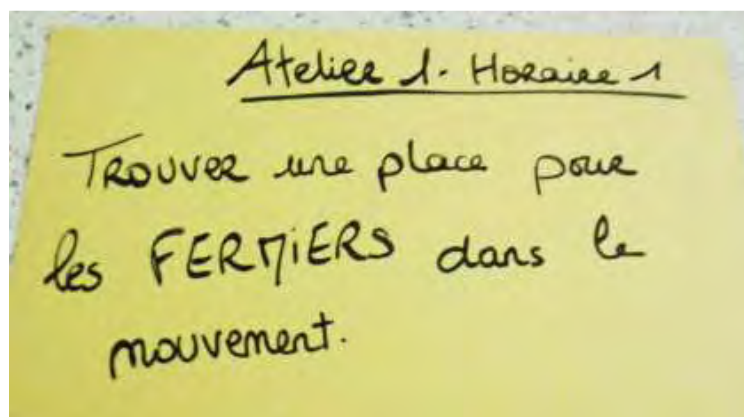 Atelier 1. Horaire 1
TROUVER une place pour
les FERMiERS dans le
mouvement.